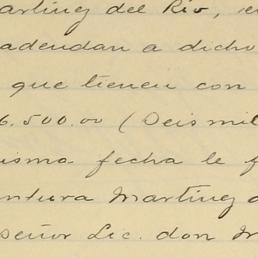 arting del Rio, e
adendan a dicho
que tienen con
6.500.00 (Seis mil
isma fecha le f
ntura Martinez d
señor Lic. don M